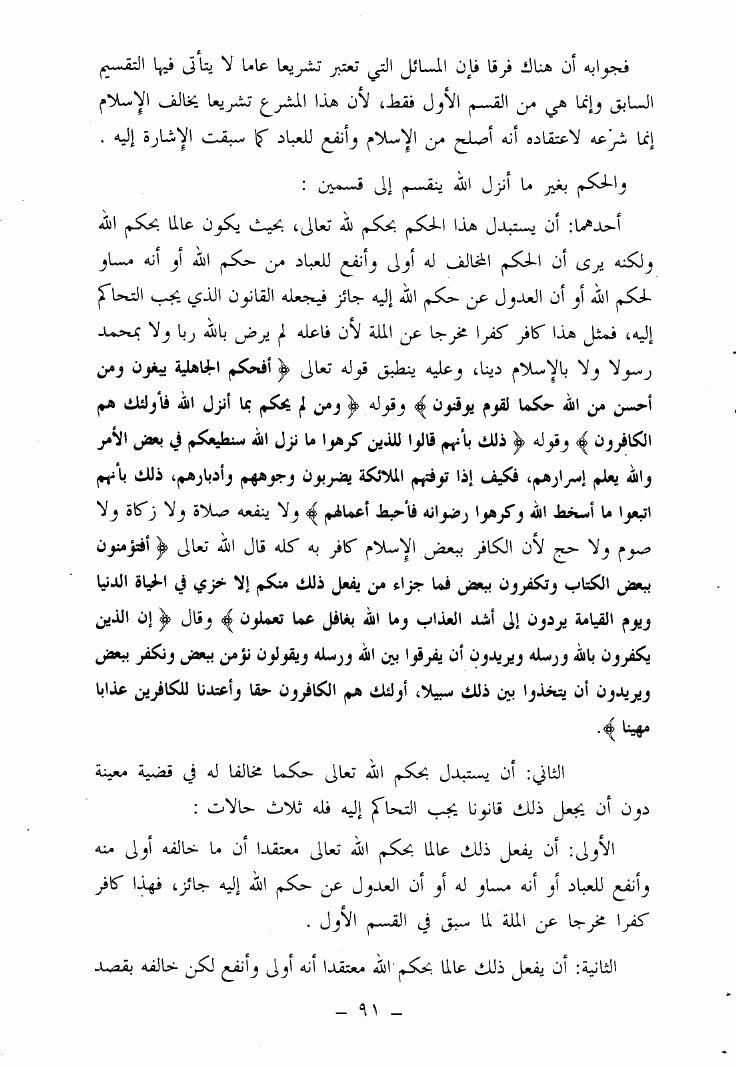 فجوابه أن هناك فرقا فإن المسائل التي تعتبر تشريعا عاما لا يتأتى فيها التقسيم
السابق وإنما هي من القسم الأول فقط، لأن هذا المشرع تشريعا يخالف الإسلام
إنما شرّعه لاعتقاده أنه أصلح من الإسلام وأنفع للعباد كما سبقت الإشارة إليه .
والحكم بغير ما أنزل الله ينقسم إلى قسمين :
أحدهما: أن يستبدل هذا الحكم بحكم لله تعالى، بحيث يكون عالما بحكم الله
ولكنه يرى أن الحكم المخالف له أولى وأنفع للعباد من حكم الله أو أنه مساو
لحكم الله أو أن العدول عن حكم الله إليه جائز فيجعله القانون الذي يجب التحاكم
إليه، فمثل هذا كافر كفرا مخرجا عن الملة لأن فاعله لم يرض بالله ربا ولا بمحمد
رسولا ولا بالإسلام دينا، وعليه ينطبق قوله تعالى ﴿ أفحكم الجاهلية يبغون ومن
أحسن من الله حكما لقوم يوقنون ﴾ وقوله ﴿ ومن لم يحكم بما أنزل الله فأولئك هم
الكافرون ﴾ وقوله ﴿ ذلك بأنهم قالوا للذين كرهوا ما نزل الله سنطيعكم في بعض الأمر
والله يعلم إسرارهم، فكيف إذا توفتهم الملائكة يضربون وجوههم وأدبارهم، ذلك بأنهم
اتبعوا ما أسخط الله وكرهوا رضوانه فأحبط أعمالهم ﴾ ولا ينفعه صلاة ولا زكاة ولا
صوم ولا حج لأن الكافر ببعض الإسلام كافر به كله قال الله تعالى ﴿ أفتؤمنون
ببعض الكتاب وتكفرون ببعض فما جزاء من يفعل ذلك منكم إلا خزي في الحياة الدنيا
ويوم القيامة يردون إلى أشد العذاب وما الله بغافل عما تعملون ﴾ وقال ﴿ إن الذين
يكفرون بالله ورسله ويريدون أن يفرقوا بين الله ورسله ويقولون نؤمن ببعض ونكفر ببعض
ويريدون أن يتخذوا بين ذلك سبيلا، أولئك هم الكافرون حقا وأعتدنا للكافرين عذابا
مهينا ﴾.
الثاني: أن يستبدل بحكم الله تعالى حكما مخالفا له في قضية معينة
دون أن يجعل ذلك قانونا يجب التحاكم إليه فله ثلاث حالات :
الأولى: أن يفعل ذلك عالما بحكم الله تعالى معتقدا أن ما خالفه أولى منه
وأنفع للعباد أو أنه مساو له أو أن العدول عن حكم الله إليه جائز، فهذا كافر
كفرا مخرجا عن الملة لما سبق في القسم الأول .
الثانية: أن يفعل ذلك عالما بحكم الله معتقدا أنه أولى وأنفع لكن خالفه بقصد
– ٩١ –